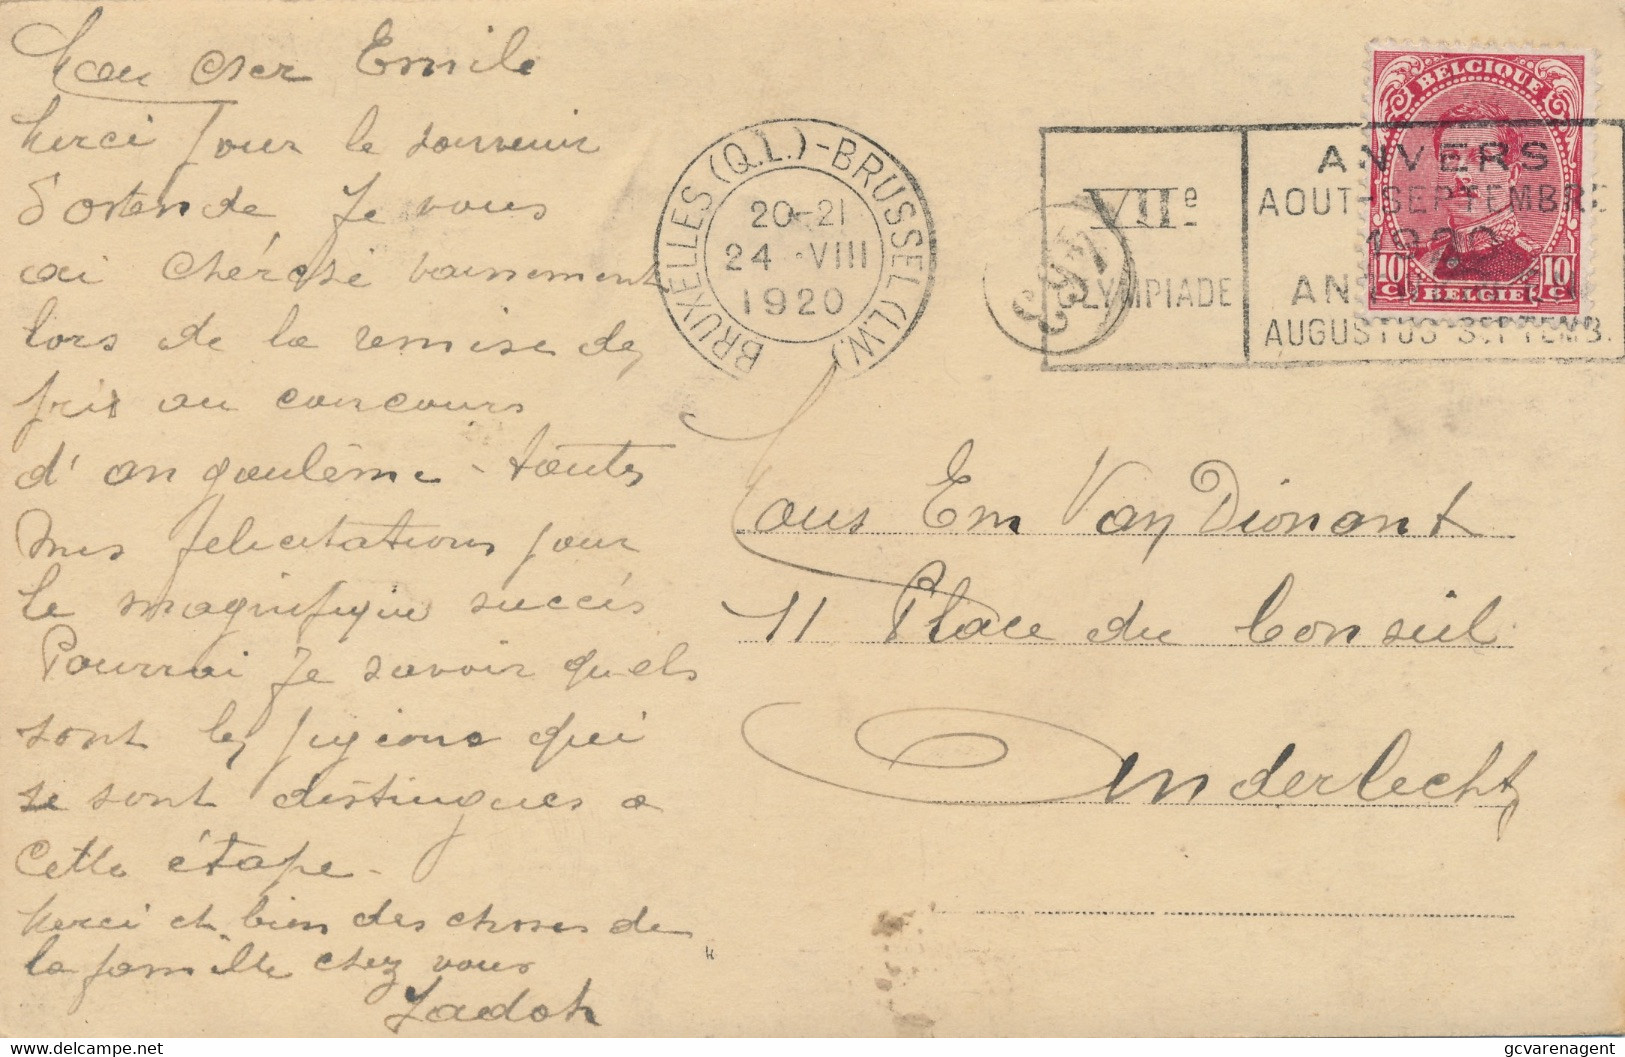 Mon cher Emile
Merci pour le souvenir
d'ostende Je vous
ai cherché vainement
lors de la remise des
prix au concours
d'angoulême - toutes
mes felicitations pour
le magnifique succès
Pourrai Je savoir quels
sont les pigeons qui
se sont distingués a
cette étape -
Merci et bien des choses de
la famille chez vous
Jadot
BRUXELLES (Q.L.) - BRUSSEL (L.W.)
20-21
24 - VIII
1920
VIIe
OLYMPIADE
ANVERS
AOUT-SEPTEMBRE
1920
ANTWERPEN
AUGUSTUS-SEPTEMB.
BELGIQUE
10 C 10 C
BELGIË
Em Van Dionant
11 Place du Conseil
Anderlecht
gcvarenagent